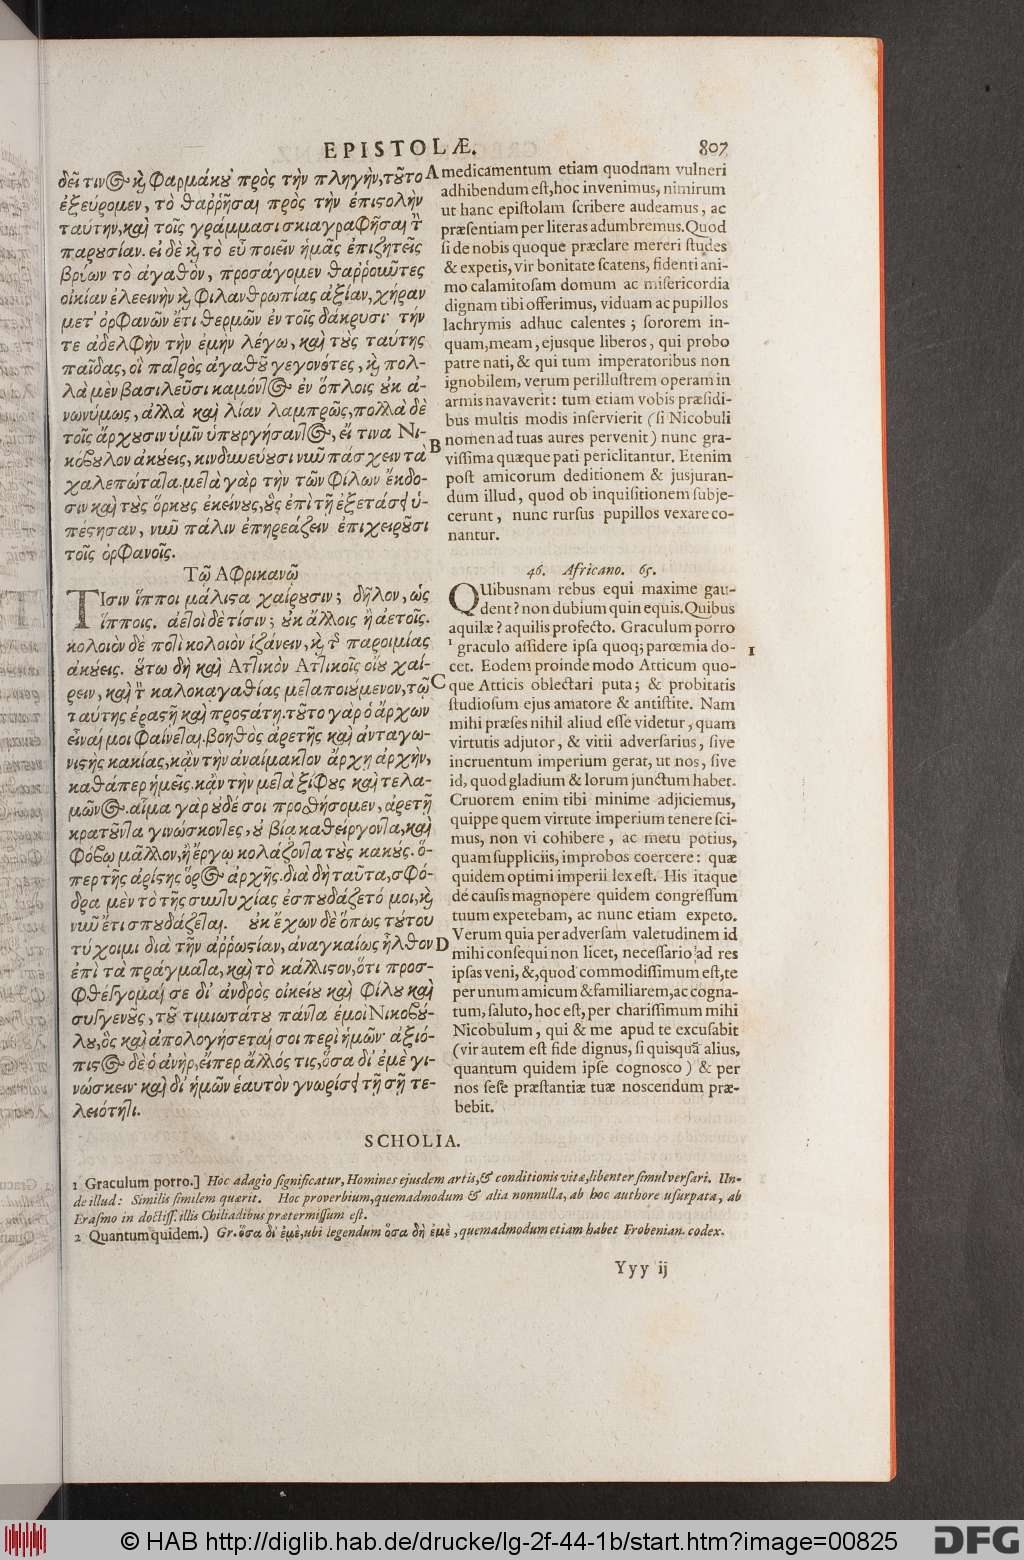 EPISTOLÆ. 807
δεῖ τινος καὶ φαρμάκου πρὸς τὴν πληγὴν, τοῦτο
ἐξεύρομεν, τὸ θαῤῥῆσαι πρὸς τὴν ἐπιστολὴν
ταύτην, καὶ τοῖς γράμμασι σκιαγραφῆσαι τὴν
παρουσίαν. εἰ δὲ καὶ τὸ εὖ ποιεῖν ἡμᾶς ἐπιζητεῖς
βρύων τὸ ἀγαθὸν, προσάγομεν θαῤῥοῦντες
οἰκίαν ἐλεεινὴν καὶ φιλανθρωπίας ἀξίαν, χήραν
μετ' ὀρφανῶν ἔτι θερμῶν ἐν τοῖς δάκρυσι· τήν
τε ἀδελφὴν τὴν ἐμὴν λέγω, καὶ τοὺς ταύτης
παῖδας, οἳ πατρὸς ἀγαθοῦ γεγονότες, καὶ πολ-
λὰ μὲν βασιλεῦσι καμόντος ἐν ὅπλοις οὐκ ἀ-
νωνύμως, ἀλλὰ καὶ λίαν λαμπρῶς, πολλὰ δὲ
τοῖς ἄρχουσιν ὑμῖν ὑπουργήσαντος, εἴ τινα Νι-
κόβουλον ἀκούεις, κινδυνεύουσι νῦν πάσχειν τὰ
χαλεπώτατα. μετὰ γὰρ τὴν τῶν φίλων ἔκδο-
σιν καὶ τοὺς ὅρκους ἐκείνους, οὓς ἐπὶ τῇ ἐξετάσει ὑ-
πέστησαν, νῦν πάλιν ἐπηρεάζειν ἐπιχειροῦσι
τοῖς ὀρφανοῖς.
Τῷ Ἀφρικανῷ
ΤΙσιν ἵπποι μάλιστα χαίρουσιν; δῆλον, ὡς
ἵπποις. ἀετοὶ δὲ τίσιν; οὐκ ἄλλοις ἢ ἀετοῖς.
κολοιὸν δὲ ποτὶ κολοιὸν ἱζάνειν, καὶ τῆς παροιμίας
ἀκούεις. οὕτω δὴ καὶ Ἀττικὸν Ἀττικοῖς οἴου χαί-
ρειν, καὶ τὸν καλοκαγαθίας μεταποιούμενον, τῷ
ταύτης ἐραστῇ καὶ προστάτῃ. τοῦτο γὰρ ὁ ἄρχων
εἶναί μοι φαίνεται. βοηθὸς ἀρετῆς καὶ ἀνταγω-
νιστὴς κακίας, κᾂν τὴν ἀναίμακτον ἄρχῃ ἀρχὴν,
καθάπερ ἡμεῖς. κᾂν τὴν μετὰ ξίφους καὶ τελα-
μῶνος. αἷμα γὰρ οὐδέ σοι προσθήσομεν, ἀρετῇ
κρατοῦντα γινώσκοντες, οὐ βίᾳ καθείργοντα, καὶ
φόβῳ μᾶλλον, ἢ ἔργῳ κολάζοντα τοὺς κακούς. ὅ-
περ τῆς ἀρίστης ὅρος ἀρχῆς. διὰ δὴ ταῦτα, σφό-
δρα μὲν τὸ τῆς συντυχίας ἐσπουδάζετό μοι, καὶ
νῦν ἔτι σπουδάζεται. οὐκ ἔχων δὲ ὅπως τούτου
τύχοιμι διὰ τὴν ἀῤῥωστίαν, ἀναγκαίως ἦλθον
ἐπὶ τὰ πράγματα, καὶ τὸ κάλλιστον, ὅτι προσ-
φθέγγομαί σε δι' ἀνδρὸς οἰκείου καὶ φίλου καὶ
συγγενοῦς, τοῦ τιμιωτάτου πάντα ἐμοὶ Νικοβού-
λου, ὃς καὶ ἀπολογήσεταί σοι περὶ ἡμῶν· ἀξιό-
πιστος δὲ ὁ ἀνὴρ, εἴπερ ἄλλός τις, ὅσα δι' ἐμὲ γι-
νώσκειν· καὶ δι' ἡμῶν ἑαυτὸν γνωρίσει τῇ σῇ τε-
λειότητι.
A medicamentum etiam quodnam vulneri
adhibendum est, hoc invenimus, nimirum
ut hanc epistolam scribere audeamus, ac
præsentiam per literas adumbremus. Quod
si de nobis quoque præclare mereri studes
& expetis, vir bonitate scatens, fidenti ani-
mo calamitosam domum ac misericordia
dignam tibi offerimus, viduam ac pupillos
lachrymis adhuc calentes; sororem in-
quam, meam, ejusque liberos, qui probo
patre nati, & qui tum imperatoribus non
ignobilem, verum perillustrem operam in
armis navaverit: tum etiam vobis præsidi-
bus multis modis inservierit (si Nicobuli
B nomen ad tuas aures pervenit) nunc gra-
vissima quæque pati periclitantur. Etenim
post amicorum deditionem & jusjuran-
dum illud, quod ob inquisitionem subje-
cerunt, nunc rursus pupillos vexare co-
nantur.
46. Africano. 65.
QUibusnam rebus equi maxime gau-
dent? non dubium quin equis. Quibus
aquilæ? aquilis profecto. Graculum porro
¹ graculo assidere ipsa quoq; parœmia do- 1
cet. Eodem proinde modo Atticum quo-
C que Atticis oblectari puta; & probitatis
studiosum ejus amatore & antistite. Nam
mihi præses nihil aliud esse videtur, quam
virtutis adjutor, & vitii adversarius, sive
incruentum imperium gerat, ut nos, sive
id, quod gladium & lorum junctum habet.
Cruorem enim tibi minime adjiciemus,
quippe quem virtute imperium tenere sci-
mus, non vi cohibere, ac metu potius,
quam suppliciis, improbos coercere: quæ
quidem optimi imperii lex est. His itaque
de causis magnopere quidem congressum
tuum expetebam, ac nunc etiam expeto.
Verum quia per adversam valetudinem id
D mihi consequi non licet, necessario ad res
ipsas veni, &, quod commodissimum est, te
per unum amicum & familiarem, ac cogna-
tum, saluto, hoc est, per charissimum mihi
Nicobulum, qui & me apud te excusabit
(vir autem est fide dignus, si quisquã alius,
quantum quidem ipse cognosco) & per
nos sese præstantiæ tuæ noscendum præ-
bebit.
SCHOLIA.
1 Graculum porro.] Hoc adagio significatur, Homines ejusdem artis, & conditionis vitæ, libenter simul versari. Un-
de illud: Similis similem quærit. Hoc proverbium, quemadmodum & alia nonnulla, ab hoc authore usurpata, ab
Erasmo in doctiss. illis Chiliadibus prætermissum est.
2 Quantum quidem.) Gr. ὅσα δι' ἐμὲ, ubi legendum ὅσα δὴ ἐμὲ, quemadmodum etiam habet Frobenian. codex.
Yyy ij
© HAB http://diglib.hab.de/drucke/lg-2f-44-1b/start.htm?image=00825
DFG